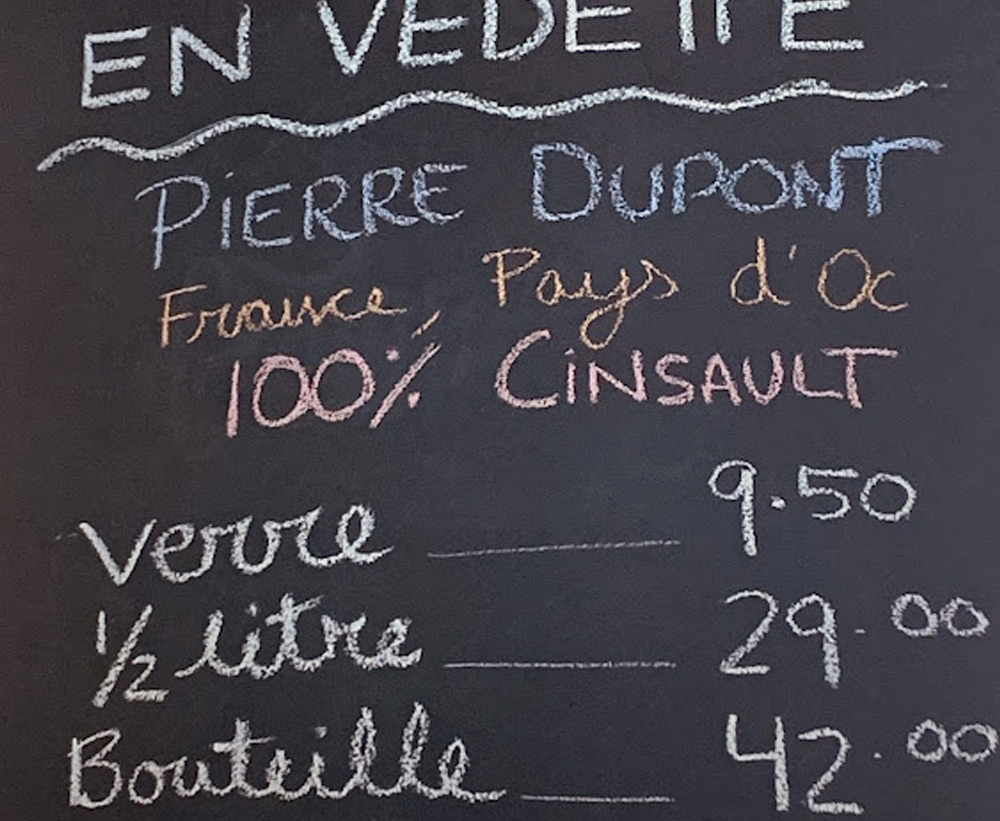 EN VEDETTE
PiERRE DUPONT
France, Pays d'Oc
100% CiNSAULT
Verre 9.50
1/2 litre 29.00
Bouteille 42.00